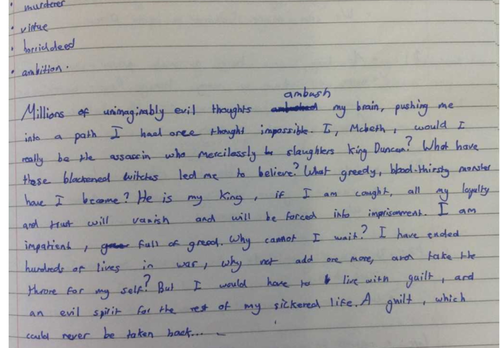 • murderer
• virtue
• horrid deed
• ambition.
ambush
Millions of unimaginably evil thoughts my brain, pushing me
into a path I had once thought impossible. I, Mcbeth, would I
really be the assassin who mercilessly slaughters King Duncan? What have
these blackened witches led me to believe? What greedy, blood-thirsty monster
have I become? He is my King, if I am caught, all my loyalty
and trust will vanish and will be forced into imprisonment. I am
impatient, full of greed. Why cannot I wait? I have ended
hundreds of lives in war, why not add one more, and take the
throne for my self? But I would have to live with guilt, and
an evil spirit for the rest of my sickered life. A guilt, which
could never be taken back.....